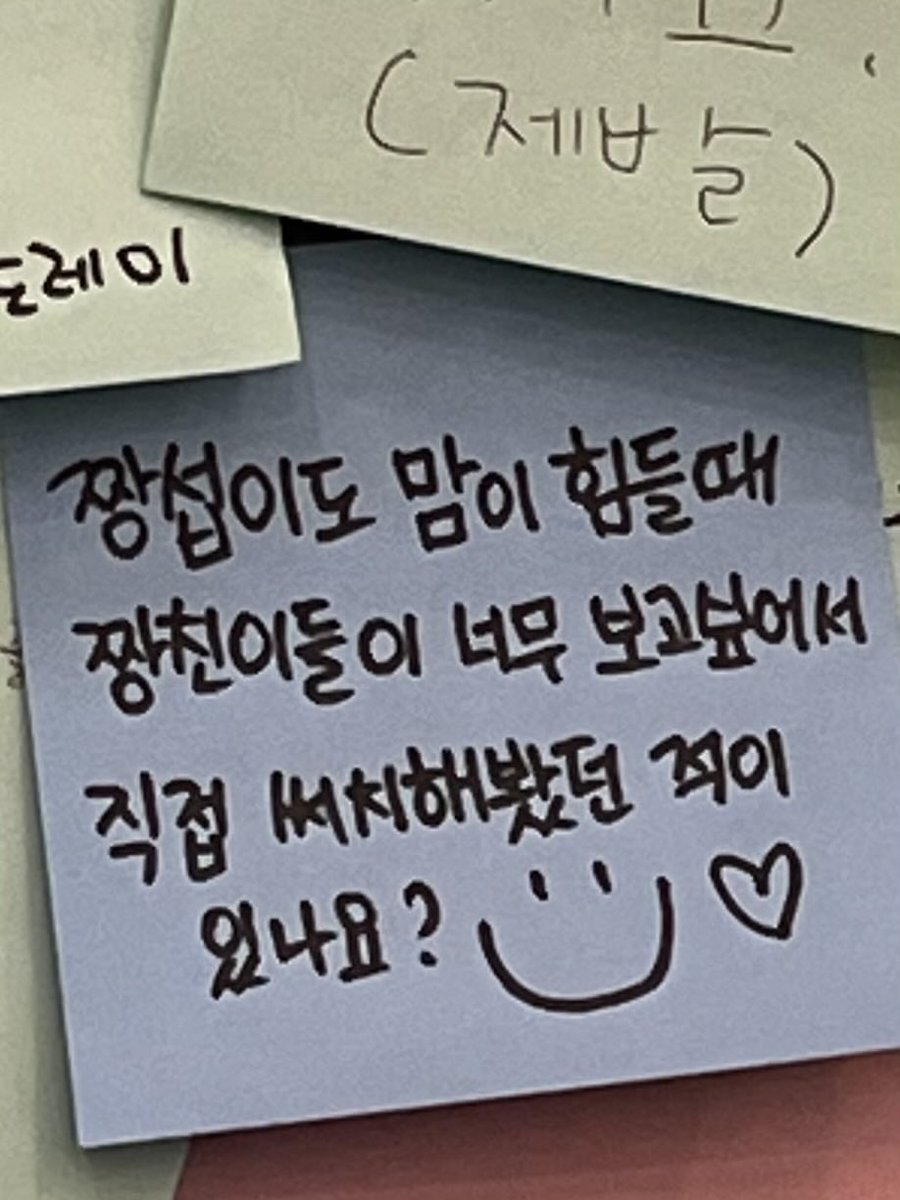 (제발)
레이
짱섭이도 맘이 힘들때
짱친이들이 너무 보고싶어서
직접 써치해봤던 적이
있나요?